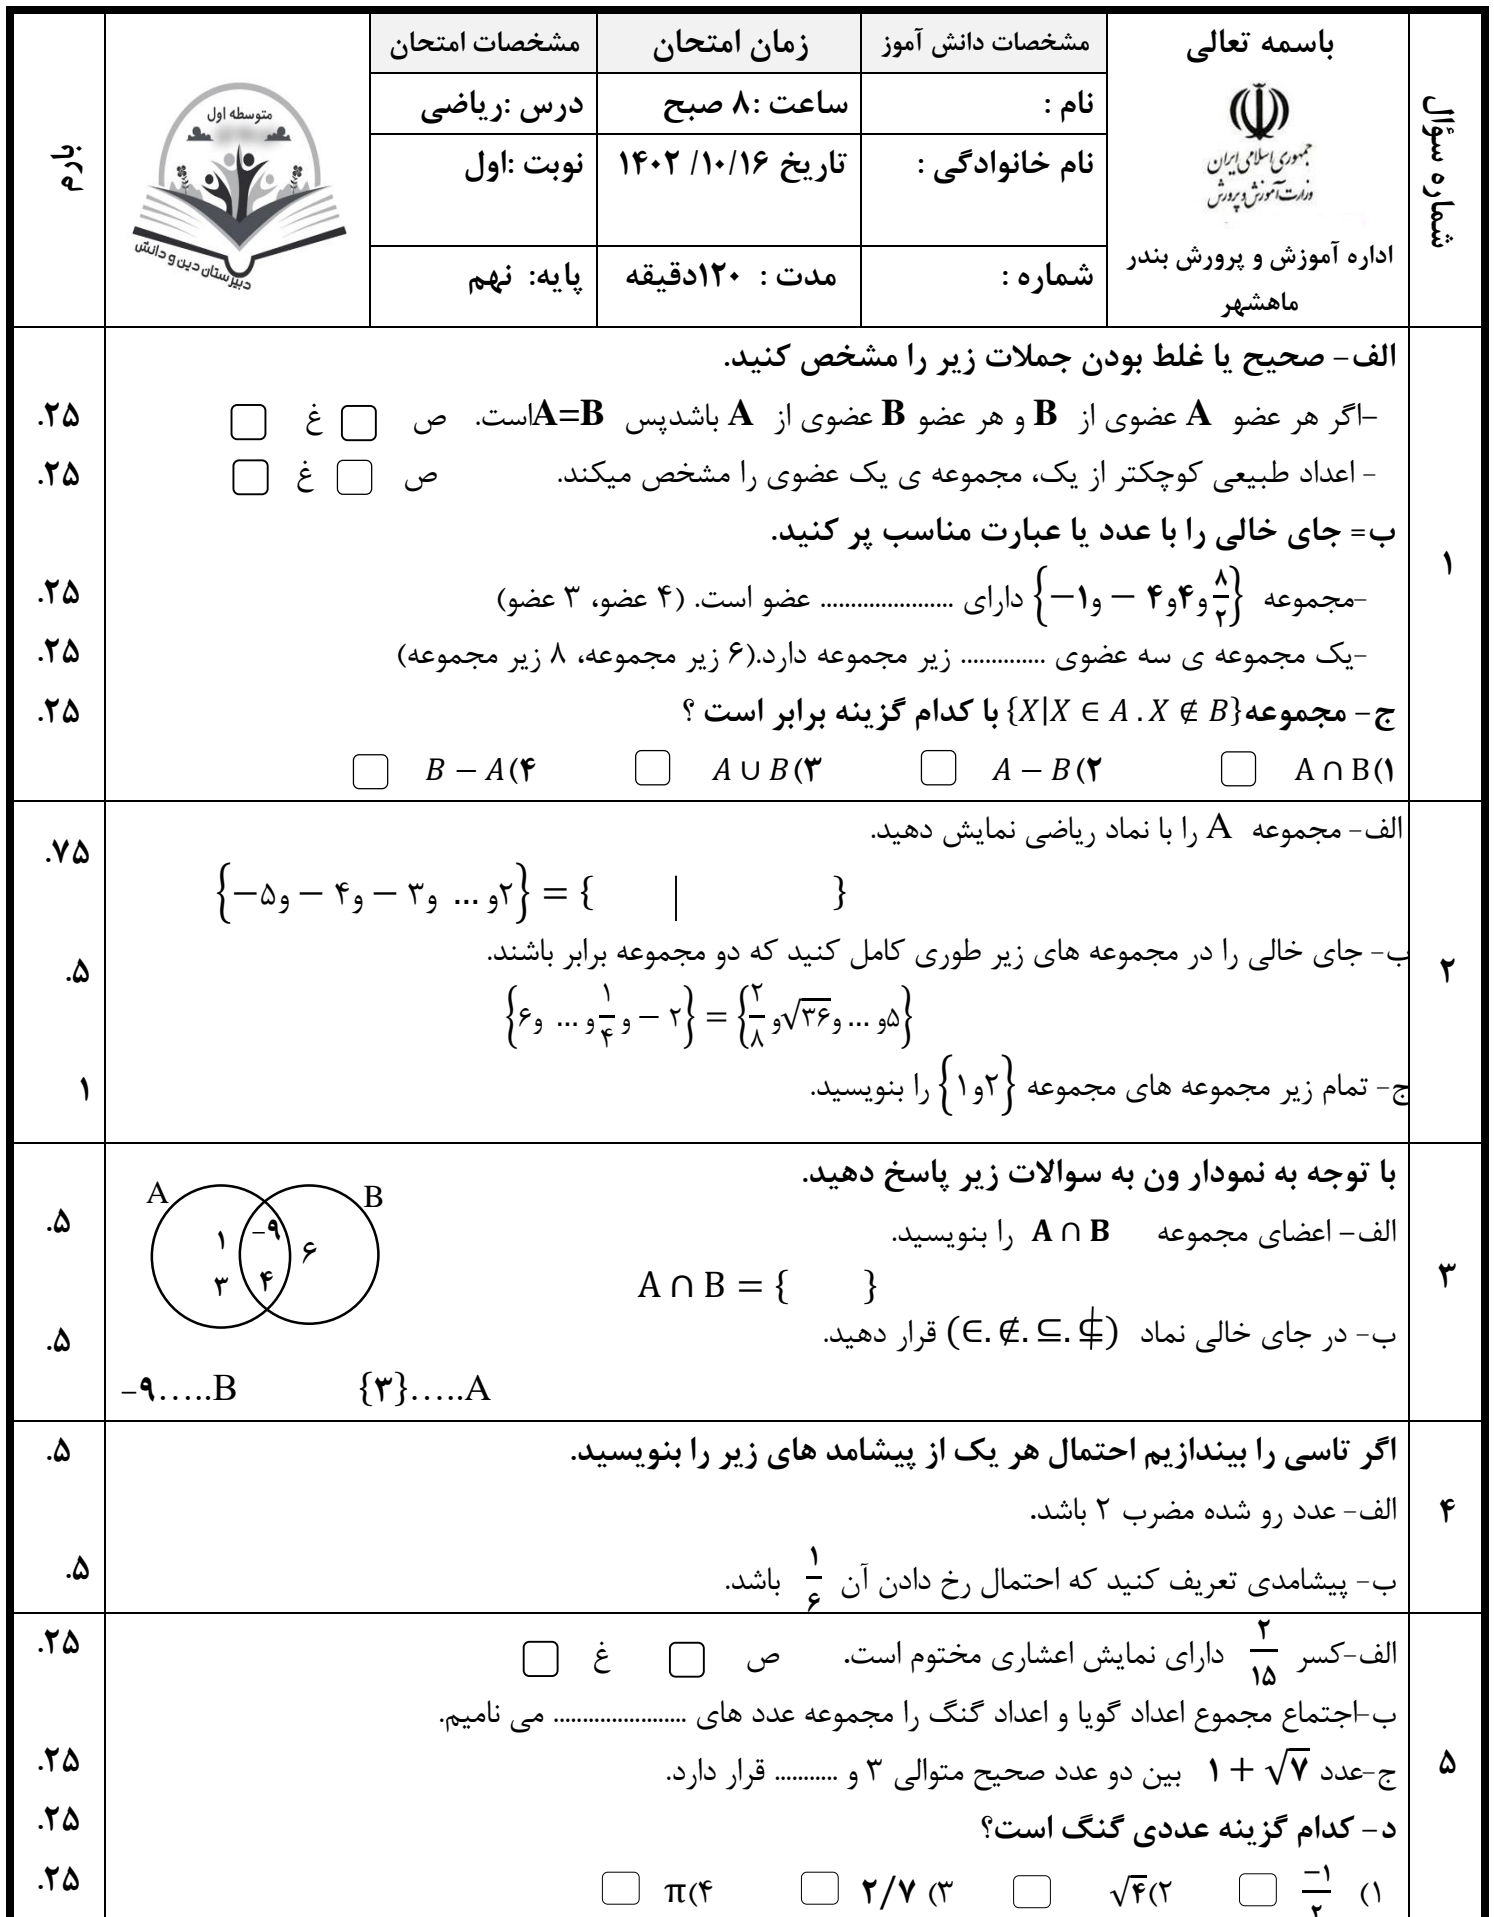 باسمه تعالی
مشخصات دانش آموز
زمان امتحان
مشخصات امتحان
شماره سؤال
بارم
نام :
ساعت :۸ صبح
درس :ریاضی
نام خانوادگی :
تاریخ ۱۴۰۲ /۱۰/۱۶
نوبت :اول
شماره :
مدت : ۱۲۰دقیقه
پایه: نهم
جمهوری اسلامی ایران
وزارت آموزش و پرورش
اداره آموزش و پرورش بندر
ماهشهر
متوسطه اول
دبیرستان دین و دانش
۱
الف- صحیح یا غلط بودن جملات زیر را مشخص کنید.
-اگر هر عضو A عضوی از B و هر عضو B عضوی از A باشدپس A=Bاست. ص غ .۲۵
- اعداد طبیعی کوچکتر از یک، مجموعه ی یک عضوی را مشخص میکند. ص غ .۲۵
ب= جای خالی را با عدد یا عبارت مناسب پر کنید.
-مجموعه {−۱و − ۴و۴و۸/۲} دارای ...................... عضو است. (۴ عضو، ۳ عضو) .۲۵
-یک مجموعه ی سه عضوی .............. زیر مجموعه دارد.(۶ زیر مجموعه، ۸ زیر مجموعه) .۲۵
ج- مجموعه{X|X ∈ A . X ∉ B} با کدام گزینه برابر است ؟ .۲۵
۱) A ∩ B ۲) A − B ۳) A ∪ B ۴) B − A
۲
الف- مجموعه A را با نماد ریاضی نمایش دهید. .۷۵
{−۵و − ۴و − ۳و ... و۲} = { | }
ب- جای خالی را در مجموعه های زیر طوری کامل کنید که دو مجموعه برابر باشند. .۵
{۶و ... و۱/۴و − ۲} = {۲/۸و√۳۶و ... و۵}
ج- تمام زیر مجموعه های مجموعه {۱و۲} را بنویسید. ۱
۳
با توجه به نمودار ون به سوالات زیر پاسخ دهید.
A B
۱ −۹ ۶
۳ ۴
الف- اعضای مجموعه A ∩ B را بنویسید. .۵
A ∩ B = { }
ب- در جای خالی نماد (∈. ∉. ⊆. ⊈) قرار دهید. .۵
−۹.....B {۳}.....A
۴
اگر تاسی را بیندازیم احتمال هر یک از پیشامد های زیر را بنویسید. .۵
الف- عدد رو شده مضرب ۲ باشد.
ب- پیشامدی تعریف کنید که احتمال رخ دادن آن ۱/۶ باشد. .۵
۵
الف-کسر ۲/۱۵ دارای نمایش اعشاری مختوم است. ص غ .۲۵
ب-اجتماع مجموع اعداد گویا و اعداد گنگ را مجموعه عدد های ....................... می نامیم.
ج-عدد ۱ + √۷ بین دو عدد صحیح متوالی ۳ و ........... قرار دارد. .۲۵
د- کدام گزینه عددی گنگ است؟ .۲۵
۱) −۱/۲ ۲) √۴ ۳) ۲/۷ ۴) π .۲۵